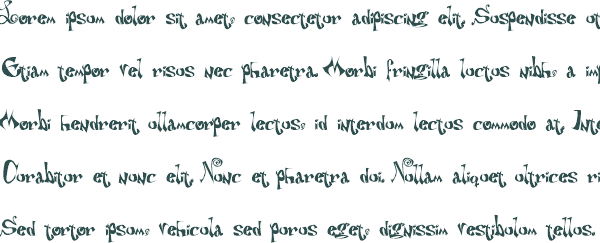 Lorem ipsum dolor sit amet, consectetur adipiscing elit. Suspendisse ut
Etiam tempor vel risus nec pharetra. Morbi fringilla luctus nibh, a imp
Morbi hendrerit ullamcorper lectus, id interdum lectus commodo at. Inte
Curabitur et nunc elit. Nunc et pharetra dui. Nullam aliquet ultrices ri
Sed tortor ipsum, vehicula sed purus eget, dignissim vestibulum tellus.